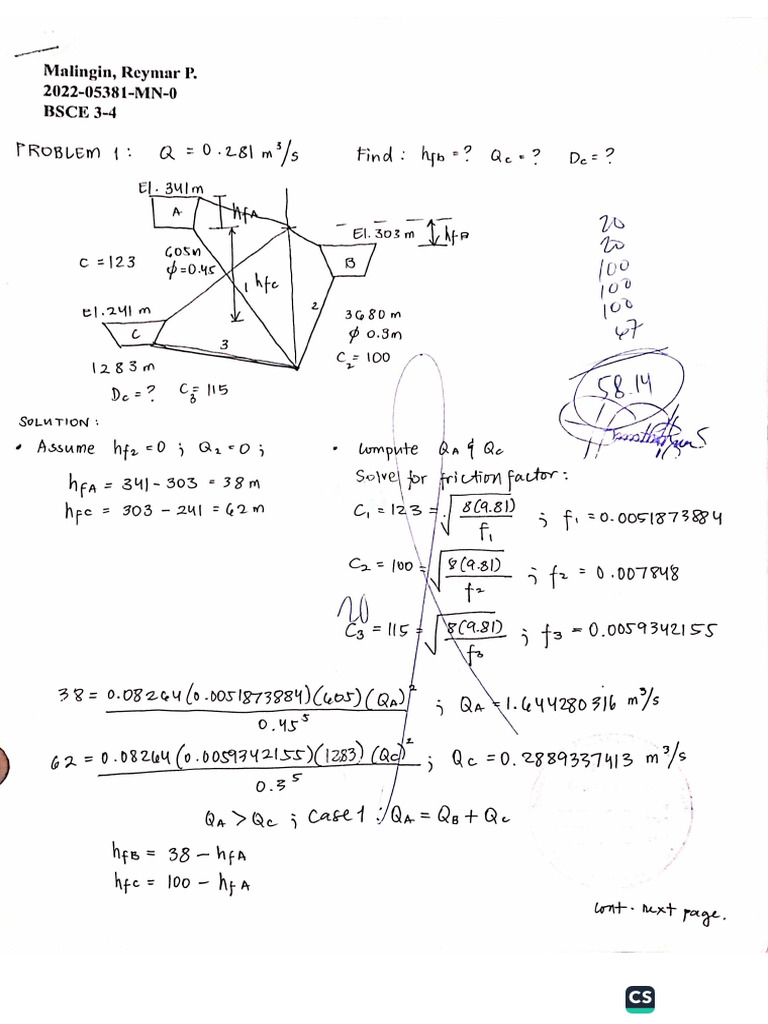 Malingin, Reymar P.
2022-05381-MN-0
BSCE 3-4
PROBLEM 1: Q = 0.281 m³/s Find: hfb = ? Qc = ? Dc = ?
El. 341m
A
hfA
El. 303 m
hfB
B
C = 123
605m
φ = 0.45
1
hfc
2
El. 241 m
C
3
3680 m
φ 0.9m
C₂ = 100
1283 m
Dc = ? C₃ = 115
20
20
100
100
100
67
58.14
SOLUTION:
• Assume hf₂ = 0 ; Q₂ = 0 ;
hfA = 341 - 303 = 38 m
hfc = 303 - 241 = 62 m
• Compute QA & Qc
Solve for friction factor:
C₁ = 123 = √(8(9.81)/f₁) ; f₁ = 0.0051873884
C₂ = 100 = √(8(9.81)/f₂) ; f₂ = 0.007848
20
C₃ = 115 = √(8(9.81)/f₃) ; f₃ = 0.0059342155
38 = 0.08264(0.0051873884)(605)(QA)² / 0.45⁵ ; QA = 1.644280316 m³/s
62 = 0.08264(0.0059342155)(1283)(Qc)² / 0.3⁵ ; Qc = 0.2889337413 m³/s
QA > Qc ; Case 1 : QA = QB + Qc
hfB = 38 - hfA
hfc = 100 - hfA
cont. next page.
CS